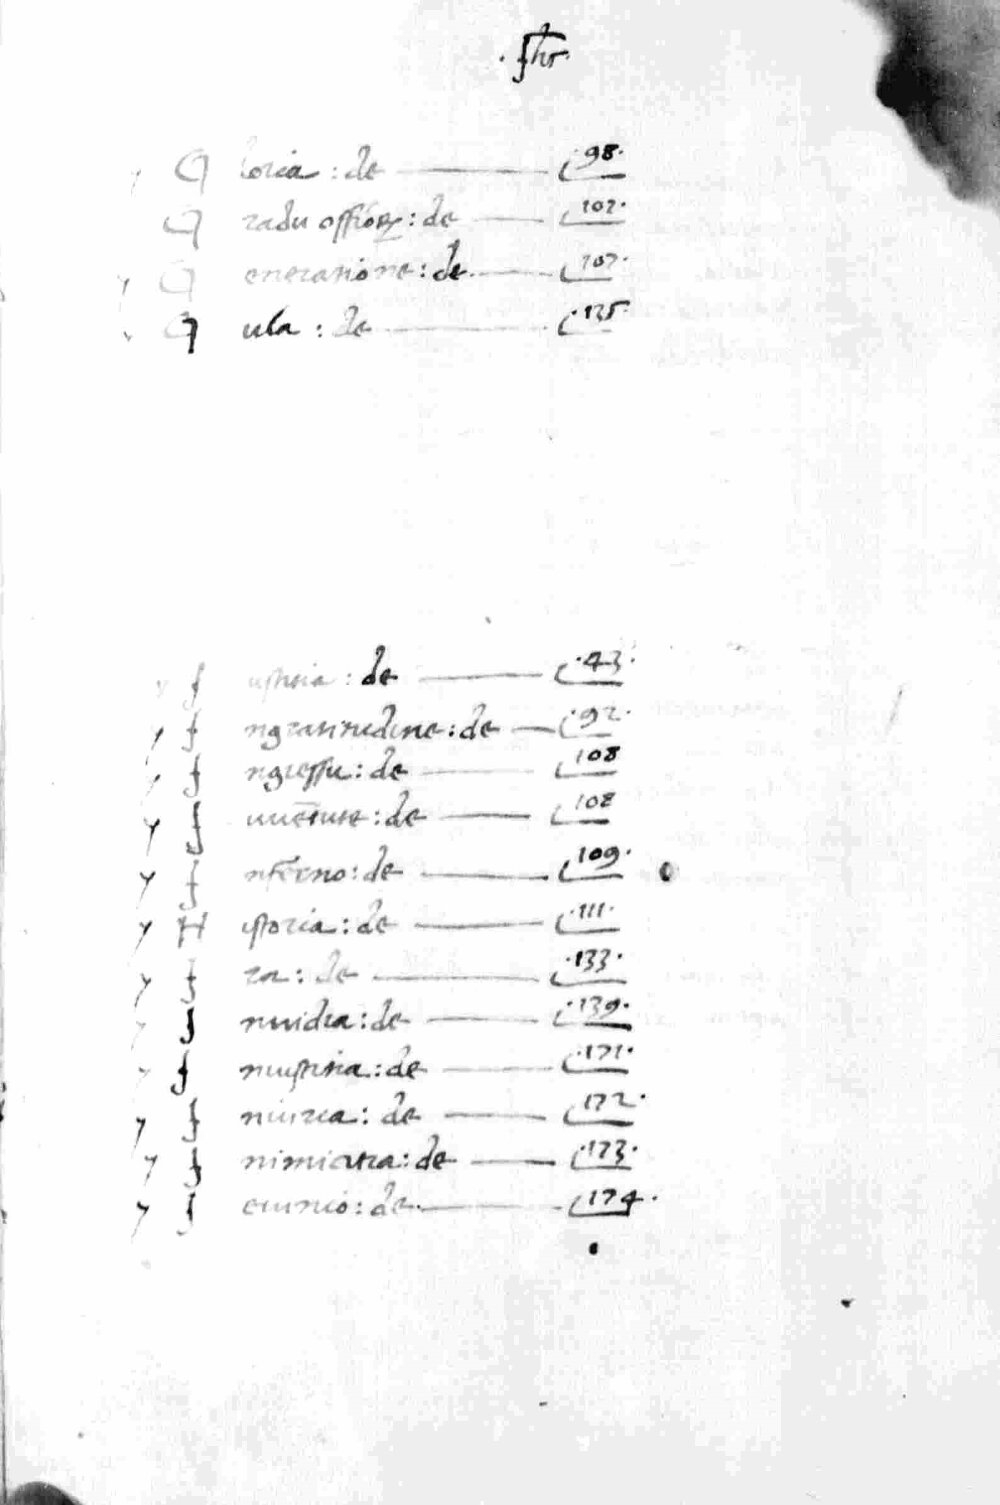 G loria : de 98.
G radu offior : de 107.
G eneratione : de 107.
G ula : de 135.
I ustitia : de 43.
I ngratitudine : de 92.
I ngressu : de 108
I uuētute : de 108
I nferno : de 109.
H istoria : de 111.
I ra : de 133.
I nuidia : de 139.
I niustitia : de 171.
I niuria : de 172.
I nimicitia : de 173.
I eiunio : de 174.